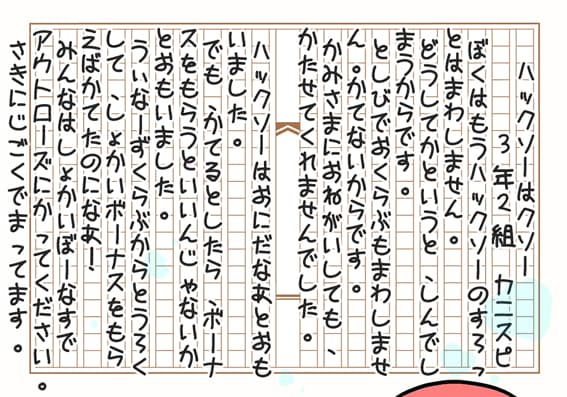 ハックソーはクソー
３年２組　カニスピ
ぼくはもうハックソーのすろっ
とはまわしません。
どうしてかというと、しんでし
まうからです。
としびでおくらぶもまわしませ
ん。かてないからです。
かみさまにおねがいしても、
かたせてくれませんでした。
ハックソーはおにだなあとおも
いました。
でも、かてるとしたら、ボーナ
スをもらうといいんじゃないか
とおもいました。
うぃなーずくらぶからとうろく
して、しょかいボーナスをもら
えばかてたのになあー！
みんなはしょかいぼーなすで
アウトローズにかってください。
さきにじごくでまってます。